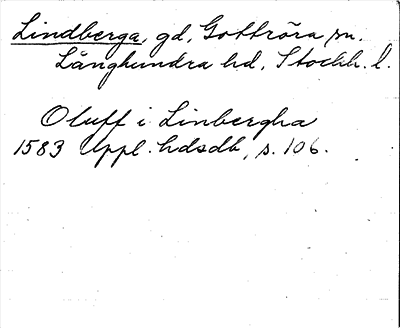 Lindberga, gd, Gottröra sn.
Långhundra hd, Stockh. l.
Oluff i Linbergha
1583 Uppl. hdsdb, s. 106.